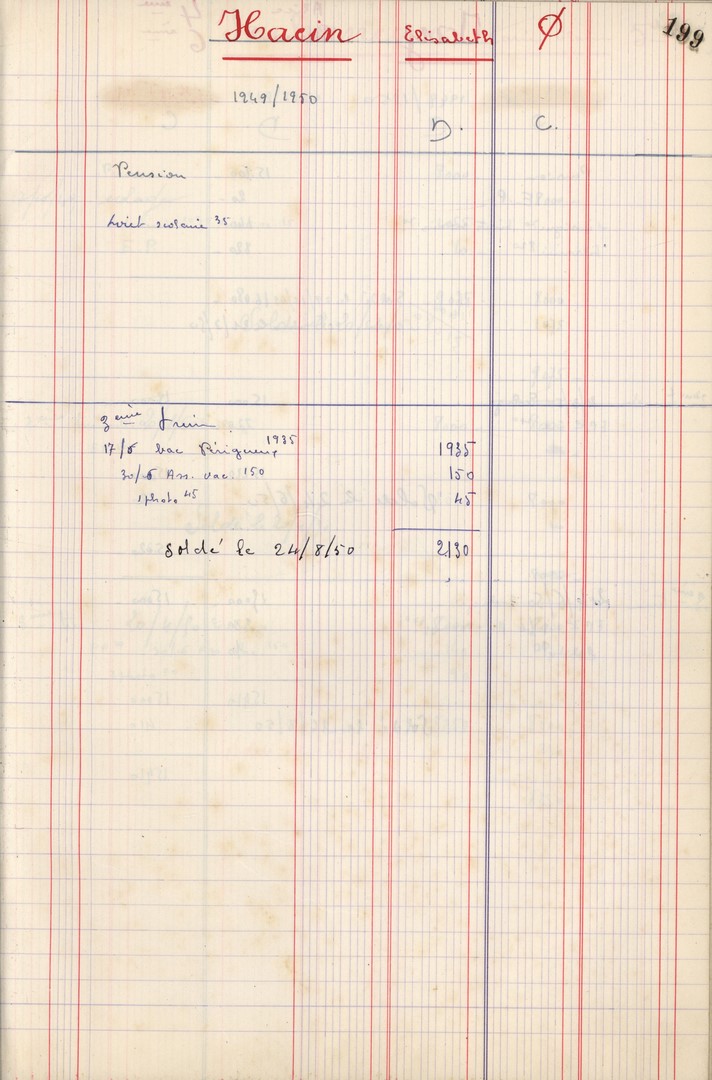 Hacin Elisabeth Ø 199
1949/1950
D. C.
Pension
Livret scolaire 35
3eme trim.
17/6 bac Périgueux 1935 1935
30/6 Ass. vac. 150 150
1 photo 45 45
Soldé le 24/8/50 2130